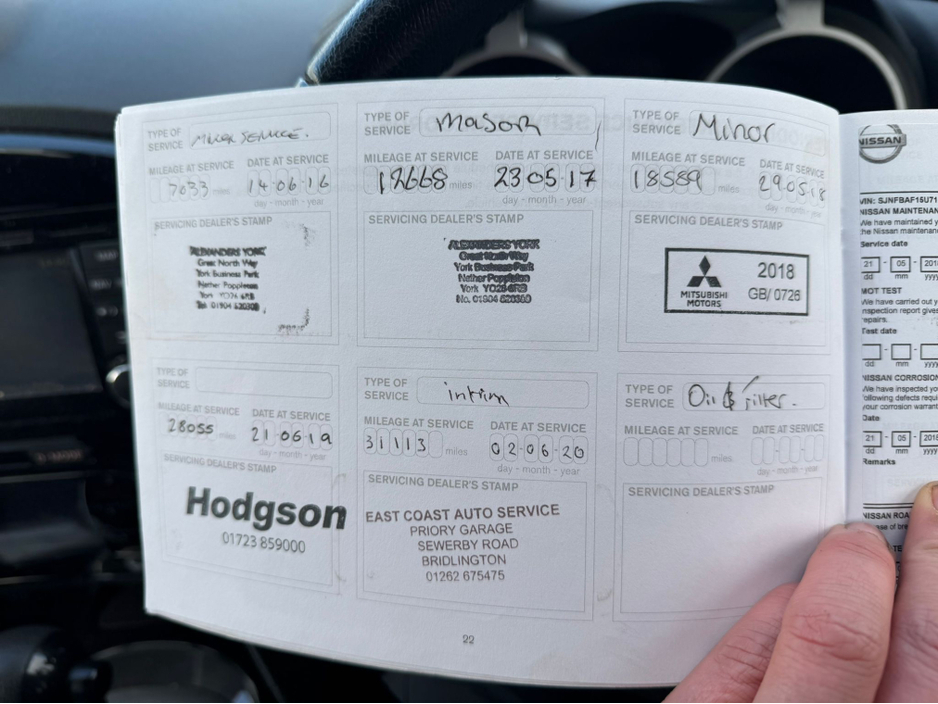 TYPE OF SERVICE MINOR SERVICE.
MILEAGE AT SERVICE
7033 miles
DATE AT SERVICE
14-06-16
day - month - year
SERVICING DEALER'S STAMP
ALEXANDERS YORK
Great North Way
York Business Park
Nether Poppleton
York YO26 6RB
Tel: 01904
TYPE OF SERVICE mason
MILEAGE AT SERVICE
12668 miles
DATE AT SERVICE
23-05-17
day - month - year
SERVICING DEALER'S STAMP
ALEXANDERS YORK
Great North Way
York Business Park
Nether Poppleton
York YO26 6RB
No. 01904
TYPE OF SERVICE Minor
MILEAGE AT SERVICE
18589 miles
DATE AT SERVICE
29 05 18
day - month - year
SERVICING DEALER'S STAMP
MITSUBISHI
MOTORS
2018
GB/ 0726
TYPE OF SERVICE
MILEAGE AT SERVICE
28055 miles
DATE AT SERVICE
21-06-19
day - month - year
SERVICING DEALER'S STAMP
Hodgson
01723 859000
TYPE OF SERVICE intrim
MILEAGE AT SERVICE
31113 miles
DATE AT SERVICE
02-06-20
day - month - year
SERVICING DEALER'S STAMP
EAST COAST AUTO SERVICE
PRIORY GARAGE
SEWERBY ROAD
BRIDLINGTON
01262 675475
TYPE OF SERVICE Oil & Filter.
MILEAGE AT SERVICE
miles
DATE AT SERVICE
day - month - year
SERVICING DEALER'S STAMP
22
NISSAN
VIN: SJNFBAF15U71
NISSAN MAINTENAN
We have maintained y
the Nissan maintenanc
Service date
21 - 05 - 201
dd mm yyyy
MOT TEST
We have carried out y
inspection report gives
repairs.
Test date
dd mm yyyy
NISSAN CORROSION
We have inspected yo
following defects requi
your corrosion warrant
Date
21 - 05 - 2018
dd mm yyyy
Remarks
NISSAN ROA